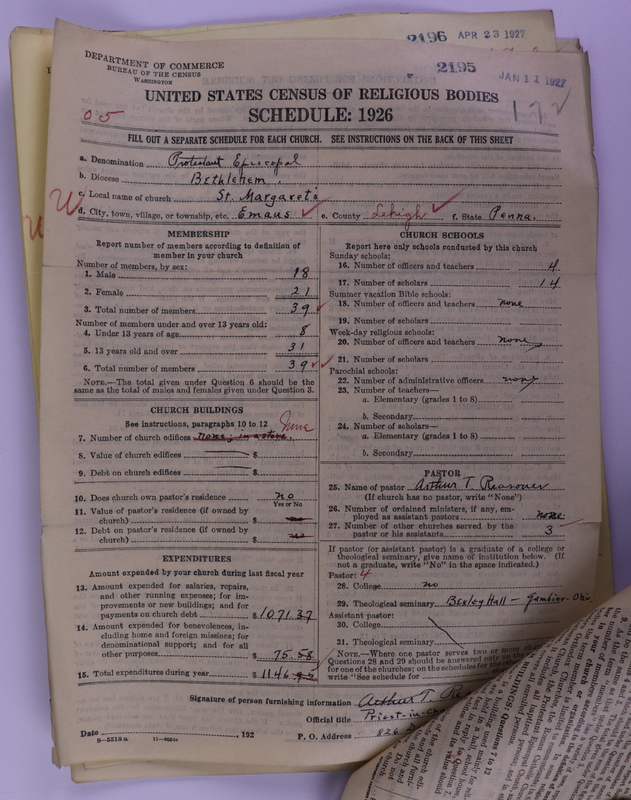 2196 APR 23 1927
DEPARTMENT OF COMMERCE
BUREAU OF THE CENSUS
WASHINGTON
2195
JAN 11 1927
172
UNITED STATES CENSUS OF RELIGIOUS BODIES
SCHEDULE: 1926
05
FILL OUT A SEPARATE SCHEDULE FOR EACH CHURCH. SEE INSTRUCTIONS ON THE BACK OF THIS SHEET
a. Denomination Protestant Episcopal
b. Diocese Bethlehem
c. Local name of church St. Margaret's
d. City, town, village, or township, etc. Emaus e. County Lehigh f. State Penna.
MEMBERSHIP
Report number of members according to definition of
member in your church
Number of members, by sex:
1. Male 18
2. Female 21
3. Total number of members 39
Number of members under and over 13 years old:
4. Under 13 years of age 8
5. 13 years old and over 31
6. Total number of members 39
NOTE.—The total given under Question 6 should be the
same as the total of males and females given under Question 3.
CHURCH BUILDINGS
See instructions, paragraphs 10 to 12
7. Number of church edifices none; in a store.
8. Value of church edifices $
9. Debt on church edifices $
10. Does church own pastor's residence no
Yes or No
11. Value of pastor's residence (if owned by
church) $ no
12. Debt on pastor's residence (if owned by
church) $ no
EXPENDITURES
Amount expended by your church during last fiscal year
13. Amount expended for salaries, repairs,
and other running expenses; for im-
provements or new buildings; and for
payments on church debt $ 1071.37
14. Amount expended for benevolences, in-
cluding home and foreign missions; for
denominational support; and for all
other purposes $ 75.58
15. Total expenditures during year $ 1146.95
CHURCH SCHOOLS
Report here only schools conducted by this church
Sunday schools:
16. Number of officers and teachers 4
17. Number of scholars 14
Summer vacation Bible schools:
18. Number of officers and teachers none
19. Number of scholars
Week-day religious schools:
20. Number of officers and teachers none
21. Number of scholars
Parochial schools:
22. Number of administrative officers none
23. Number of teachers—
a. Elementary (grades 1 to 8)
b. Secondary
24. Number of scholars—
a. Elementary (grades 1 to 8)
b. Secondary
PASTOR
25. Name of pastor Arthur T. Reasoner
(If church has no pastor, write "None")
26. Number of ordained ministers, if any, em-
ployed as assistant pastors none
27. Number of other churches served by the
pastor or his assistants 3
If pastor (or assistant pastor) is a graduate of a college or
theological seminary, give name of institution below. (If
not a graduate, write "No" in the space indicated.)
Pastor: 4
28. College no
29. Theological seminary Bexley Hall - Gambier - Ohio
Assistant pastor:
30. College
31. Theological seminary
NOTE.—Where one pastor serves two or more
Questions 28 and 29 should be answered only on the
for one of the churches; on the schedules for the
write "See schedule for
Signature of person furnishing information Arthur T. Re
Official title Priest-in-
Date , 192
P. O. Address 826
8—5518a